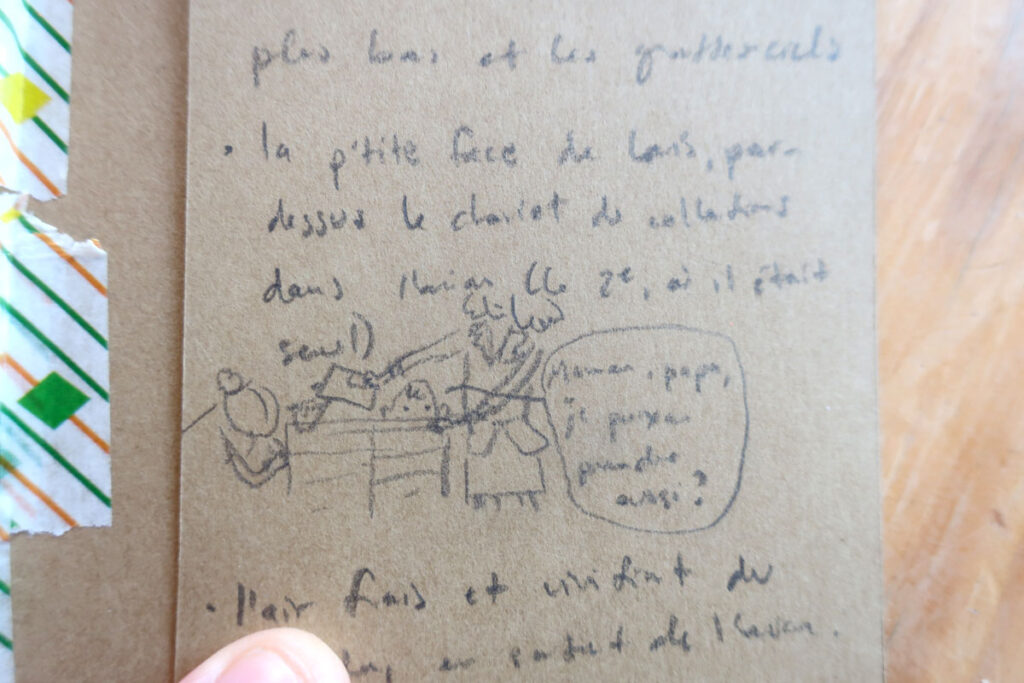 plus bas et les gratte-ciels
• la p'tite face de Loris, par-
dessus le chariot de collations
dans l'avion (le 2e, où il était
seul)
Maman, papa,
je peux
prendre
aussi?
• l'air frais et vivifiant de
en sortant de l'avion.